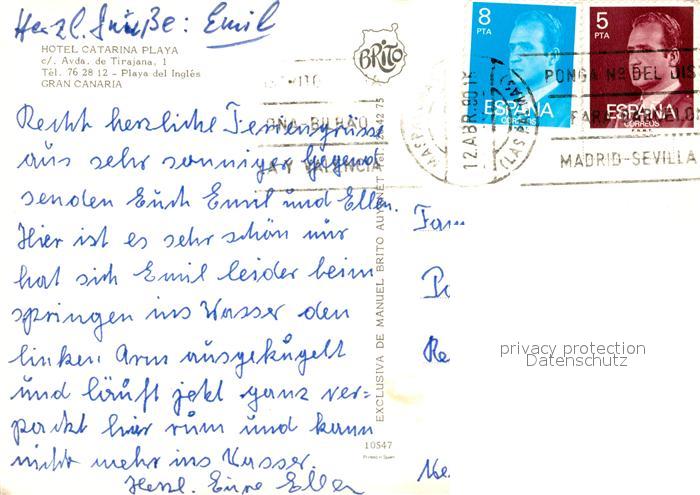 Herzl. Grüße: Emil
HOTEL CATARINA PLAYA
c/. Avda. de Tirajana, 1
Tél. 76 28 12 - Playa del Inglés
GRAN CANARIA
BRITO
8
PTA
ESPAÑA
CORREOS
5
PTA
ESPAÑA
CORREOS
12.ABR.80
PONGA Nº DEL DIS
MADRID-SEVILLA
BILBAO
VALENCIA
Recht herzliche Feriengrüsse
aus sehr sonniger Gegend
senden Euch Emil und Ellen.
Hier ist es sehr schön nur
hat sich Emil leider beim
springen ins Wasser den
linken Arm ausgekugelt
und läuft jetzt ganz ver=
packt hier rum und kann
nicht mehr ins Wasser.
Herzl. Eure Ellen
EXCLUSIVA DE MANUEL BRITO
10547
Printed in Spain
Fam
Re
privacy protection
Datenschutz